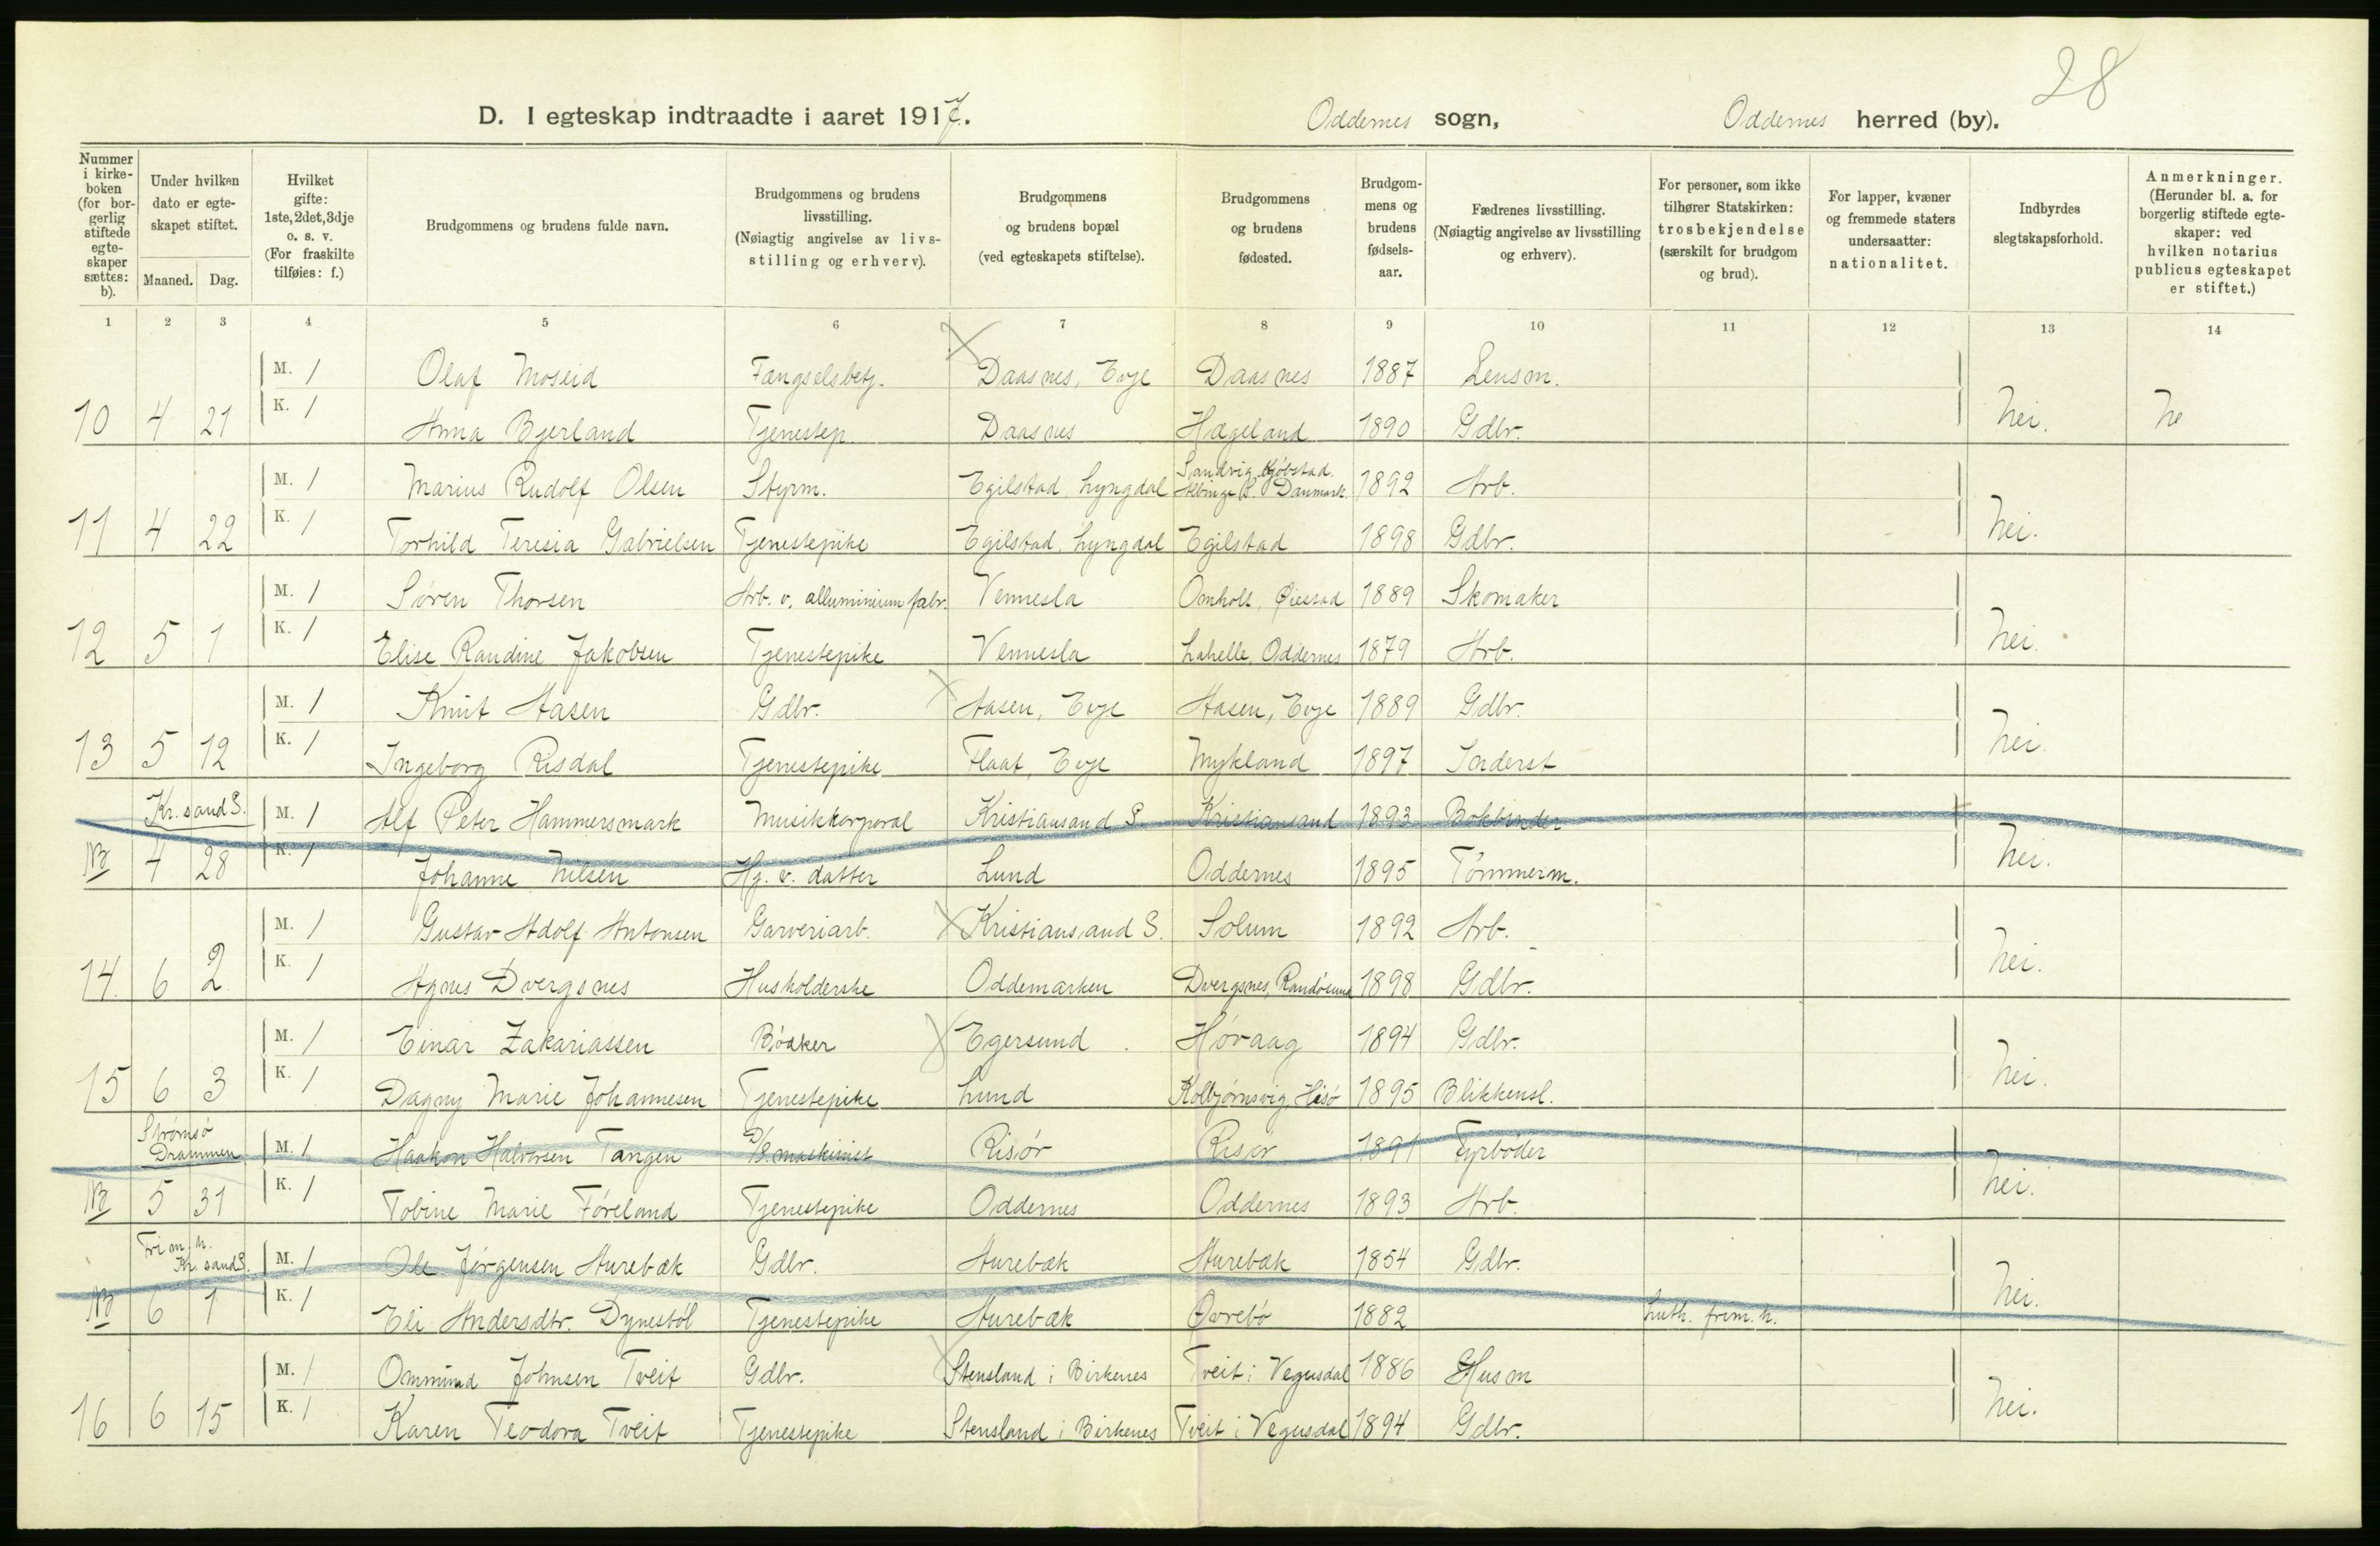 28
D. I egteskap indtraadte i aaret 1917. Oddernes sogn, Oddernes herred (by).
Nummer i kirkeboken (for borgerlig stiftede egteskaper sættes: b).
Under hvilken dato er egteskapet stiftet.
Maaned. Dag.
Hvilket gifte: 1ste, 2det, 3dje o. s. v. (For fraskilte tilføies: f.)
Brudgommens og brudens fulde navn.
Brudgommens og brudens livsstilling. (Nøiagtig angivelse av livsstilling og erhverv).
Brudgommens og brudens bopæl (ved egteskapets stiftelse).
Brudgommens og brudens fødested.
Brudgommens og brudens fødselsaar.
Fædrenes livsstilling. (Nøiagtig angivelse av livsstilling og erhverv).
For personer, som ikke tilhører Statskirken: trosbekjendelse (særskilt for brudgom og brud).
For lapper, kvæner og fremmede staters undersaatter: nationalitet.
Indbyrdes slegtskapsforhold.
Anmerkninger. (Herunder bl. a. for borgerlig stiftede egteskaper: ved hvilken notarius publicus egteskapet er stiftet.)
1 2 3 4 5 6 7 8 9 10 11 12 13 14
M. 1 Olaf Moseid Fængselsbetj. Daasnes, Evje Daasnes 1887 Lensm.
10 4 21 K. 1 Anna Bjerland Tjenestep. Daasnes Hægeland 1890 Gdbr. Nei. Ne
M. 1 Marius Rudolf Olsen Styrm. Egilstad, Lyngdal Sandvig Kjöbstad. P. Danmark. 1892 Arb.
11 4 22 K. 1 Torhild Teresia Gabrielsen Tjenestepike Egilstad, Lyngdal Egilstad 1898 Gdbr. Nei.
M. 1 Søren Thorsen Arb. v. alluminium fabr. Vennesla Omholt, Øiestad 1889 Skomaker
12 5 1 K. 1 Elise Randine Jakobsen Tjenestepike Vennesla Lahelle, Oddernes 1879 Arb. Nei.
M. 1 Knut Aasen Gdbr. Aasen, Evje Aasen, Evje 1889 Gdbr.
13 5 12 K. 1 Ingeborg Risdal Tjenestepike Flaat, Evje Mykland 1897 Inderst Nei.
Kr.sand S. M. 1 Alf Peter Hammersmark Musikkorporal Kristiansand S. Kristiansand 1893 Bokbinder
NB 4 28 K. 1 Johanne Nilsen Hj. v. datter Lund Oddernes 1895 Tömmerm. Nei.
M. 1 Gustav Adolf Antonsen Garveriarb. Kristiansand S. Solum 1892 Arb.
14. 6 2 K. 1 Agnes Dvergsnes Husholderske Oddemarken Dvergsnes, Randösund 1898 Gdbr. Nei.
M. 1 Einar Zakariassen Bödker Egersund Hövaag 1894 Gdbr.
15 6 3 K. 1 Dagny Marie Johannesen Tjenestepike Lund Kolbjörnsvig, Hisö 1895 Blikkensl. Nei.
Strömsö Drammen M. 1 Haakon Halvorsen Tangen D/S. maskinist Risör Risör 1891 Fyrböder
NB 5 31 K. 1 Tobine Marie Föreland Tjenestepike Oddernes Oddernes 1893 Arb. Nei.
Fri m. h. Kr. sand S. M. 1 Ole Jørgensen Aurebæk Gdbr. Aurebæk Aurebæk 1854 Gdbr.
NB 6 1 K. 1 Eli Andersdtr. Dynestöl Tjenestepike Aurebæk Övrebö 1882 Luth. frim. h. Nei.
M. 1 Ommund Johnsen Tveit Gdbr. Stensland i Birkenes Tveit i Vegusdal 1886 Husm
16 6 15 K. 1 Karen Teodora Tveit Tjenestepike Stensland i Birkenes Tveit i Vegusdal 1894 Gdbr. Nei.